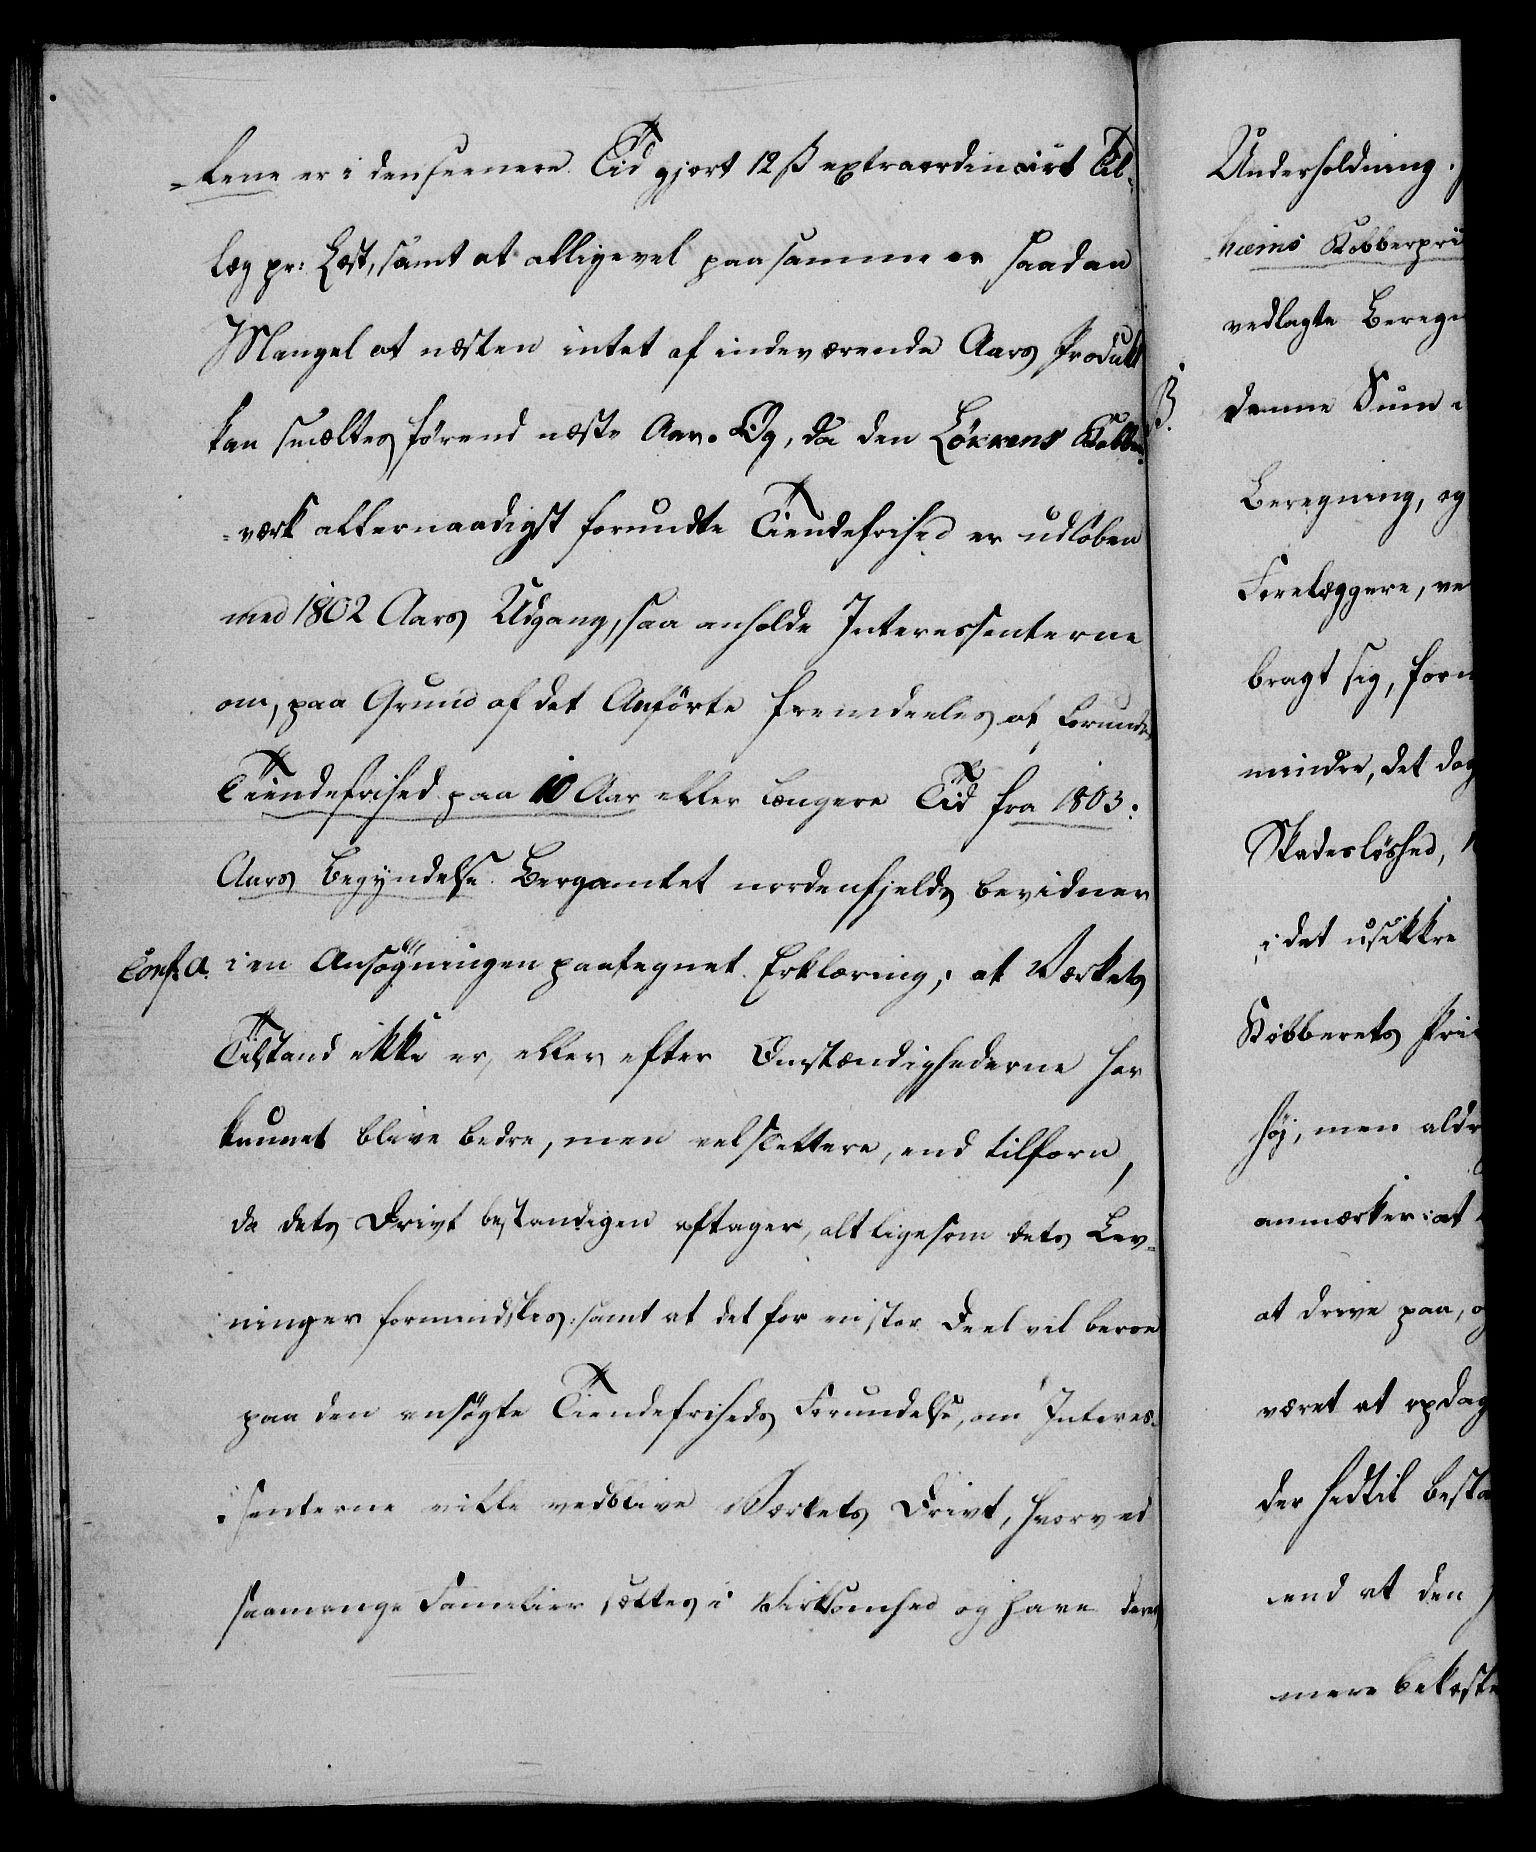 -kene er i den seenere Tid gjort 12 ß extraordinairt Til-
læg pr: Læst, samt at alligevel paa samme er saadan
Mangel at næsten intet af indeværende Aars Produkt
kan smeltes förend næste Aar. Og, da den Løkkens Kobber-
-værk allernaadigst forundte Tiendefrihed er udløben
med 1802 Aars Udgang, saa anholde Interessenterne
om, paa Grund af det Anförte fremdeeles at forundes
Tiendefrihed paa 10 Aar eller længere Tid fra 1803:
Aars Begyndelse. Bergamtet nordenfjelds bevidner
Conf. a. i en Ansøgningen paategnet Erklæring, at Værkets
Tilstand ikke er, eller efter Omstændighederne har
kunnet blive bedre, men vel slettere, end tilforn,
da dets Drivt bestandigen aftager, alt ligesom dets Lev-
ninger formindskes; samt at det for en stor Deel vil beroe
paa den ansøgte Tiendefriheds Forundelse, om Interes-
senterne ville vedblive Værkets Drivt, hvorved
saamange Familier sættes i Virksomhed og have deres
Underholdning.
-hæims Kobberpri
vedlagte Beregn
ß. denne Sum
Beregning, og
Forelæggere, ve
bragt sig, for
mindre, det dog
Skadesløshed,
i det usikkre
Kobberets Pri
høj, men aldr
anmærker: at
at drive paa, o
været at opdag
der hidtil besta
end at den
mere bekoste